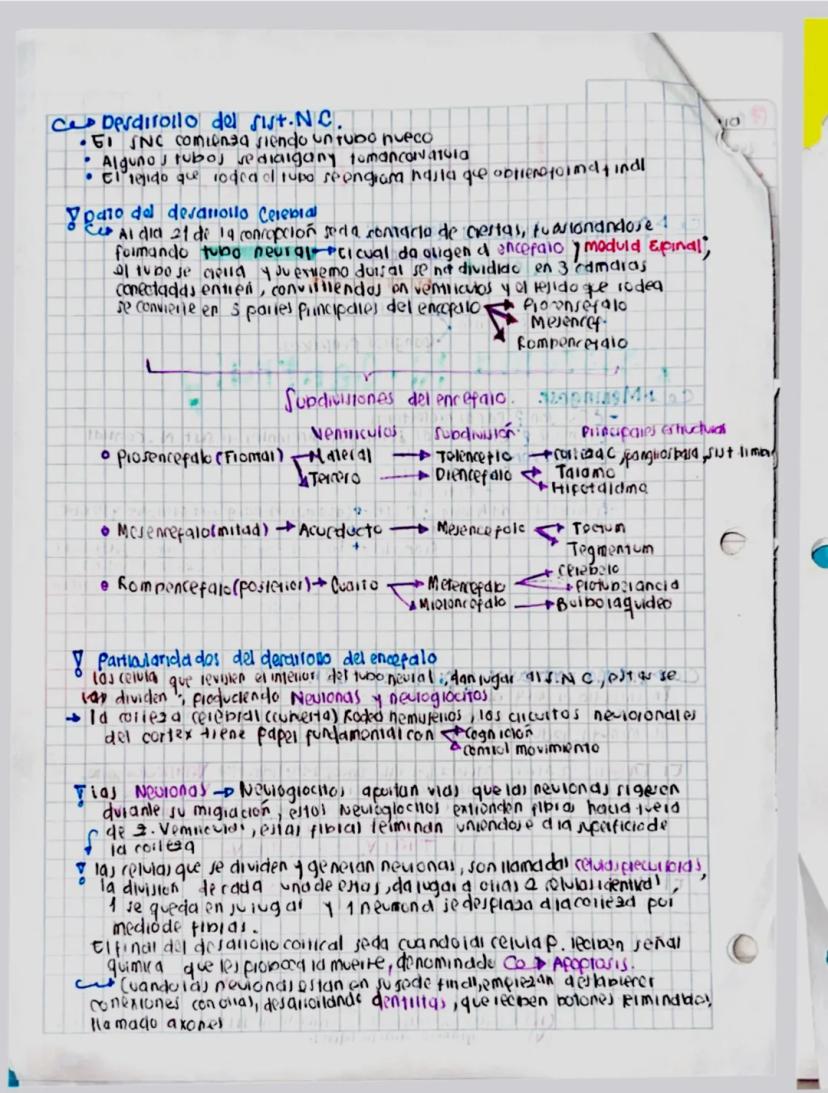 Desarrollo del sist. N.C.
• El SNC comienza siendo un tubo hueco
• Algunos tubos se alargan y toman curvatura
• El tejido que rodea el tubo se engrosa hasta que obtiene forma final
paso del desarrollo Cerebral
Al dia 21 de la concepción se da contacto de crestas, fusionandose
formando tubo neural → el cual da origen al encefalo y medula Espinal,
el tubo se cierra y su extremo dorsal se ha dividido en 3 camaras
conectadas entre si, convirtiendos en ventriculos y el tejido que rodea
se convierte en 3 partes principales del encefalo → Proensefalo
→ Mesencef.
→ Rompencefalo
Subdivisiones del encefalo.
Ventriculos Subdivisión Principales estructuras
• Prosencefalo (Frontal) → Lateral → Telenceflo → corteza C, ganglios basa, sist limb
→ Tercero → Diencefalo → Talamo
→ Hipotalamo
• Mesencefalo (mitad) → Acueducto → Mesencefalo → Tectum
→ Tegmentum
• Rompencefalo (posterior) → Cuarto → Metencefalo → Cerebelo
→ Protuberancia
→ Mieloncefalo → Bulbo raquideo
Particularidades del desarrollo del encefalo
las celula que revisten el interior del tubo neural, dan lugar al S.N.C, estas se
dividen, produciendo Neuronas y neuroglocitos
→ la corteza cerebral (cubierta) Rodea hemisferios, los circuitos neuroronales
del cortex tiene papel fundamental con → Cognición
→ control movimiento
las Neuronas → Neuroglocitos aportan vias que las neuronas sigeren
durante su migración, estos Neuroglocitos extienden fibras hacia fuera
de Z. Ventricular, estas fibras terminan uniendose a la superficie de
la corteza
las celulas que se dividen y generan neuronas, son llamadas celulas precursoras,
la division de cada una de estas, da lugar a otras 2 celulas identicas,
1 se queda en su lugar y 1 neurona se desplaza a la corteza por
medio de fibras.
El final del desarrollo cortical se da cuando las celula P. reciben señal
quimica que les probaca la muerte, denominada → Apoptosis.
Cuando las neuronas estan en su sede final, empiezan a establecer
conexiones con otras, desarrollando dentritas, que reciben botones terminables,
llamado axones